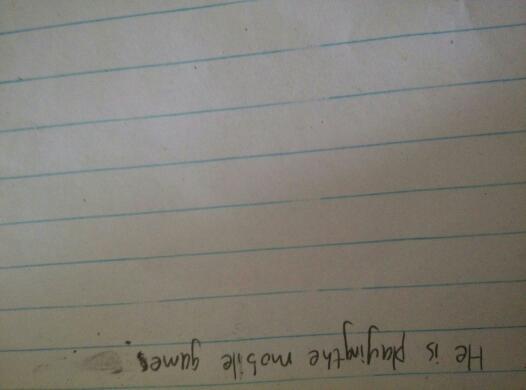 He is playing the mobile games